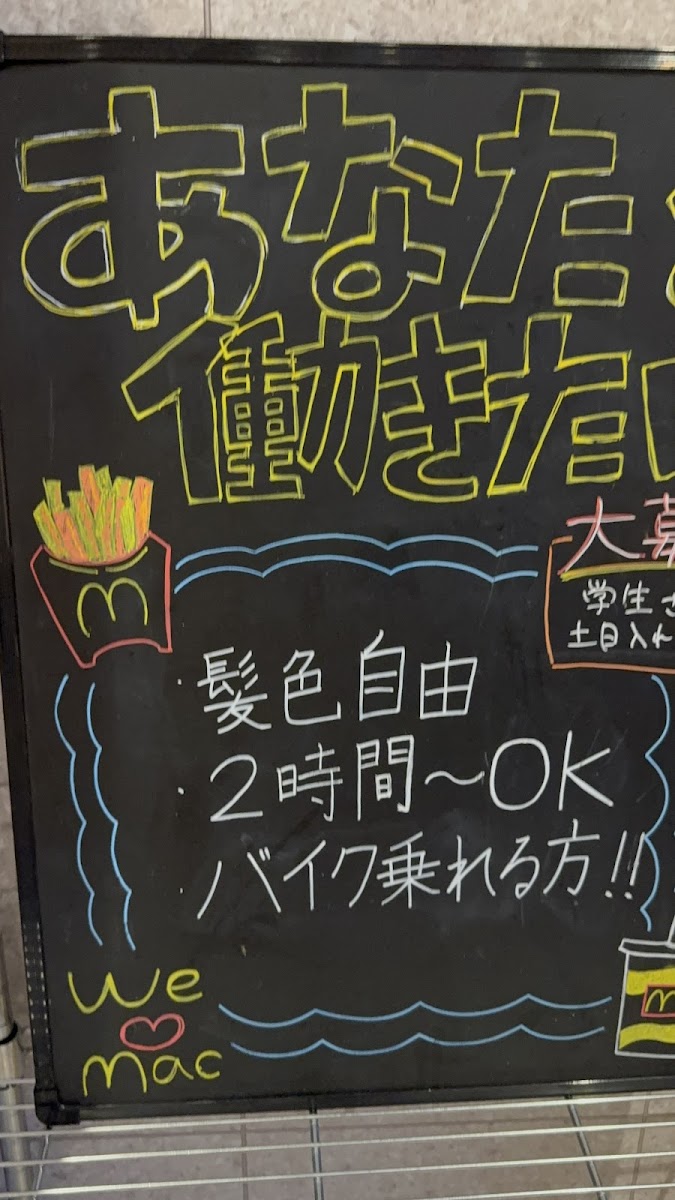 あなた
働きたい
大募
学生さ
土日入れ
・髪色自由
・2時間〜OK
・バイク乗れる方!!
We
♡
mac